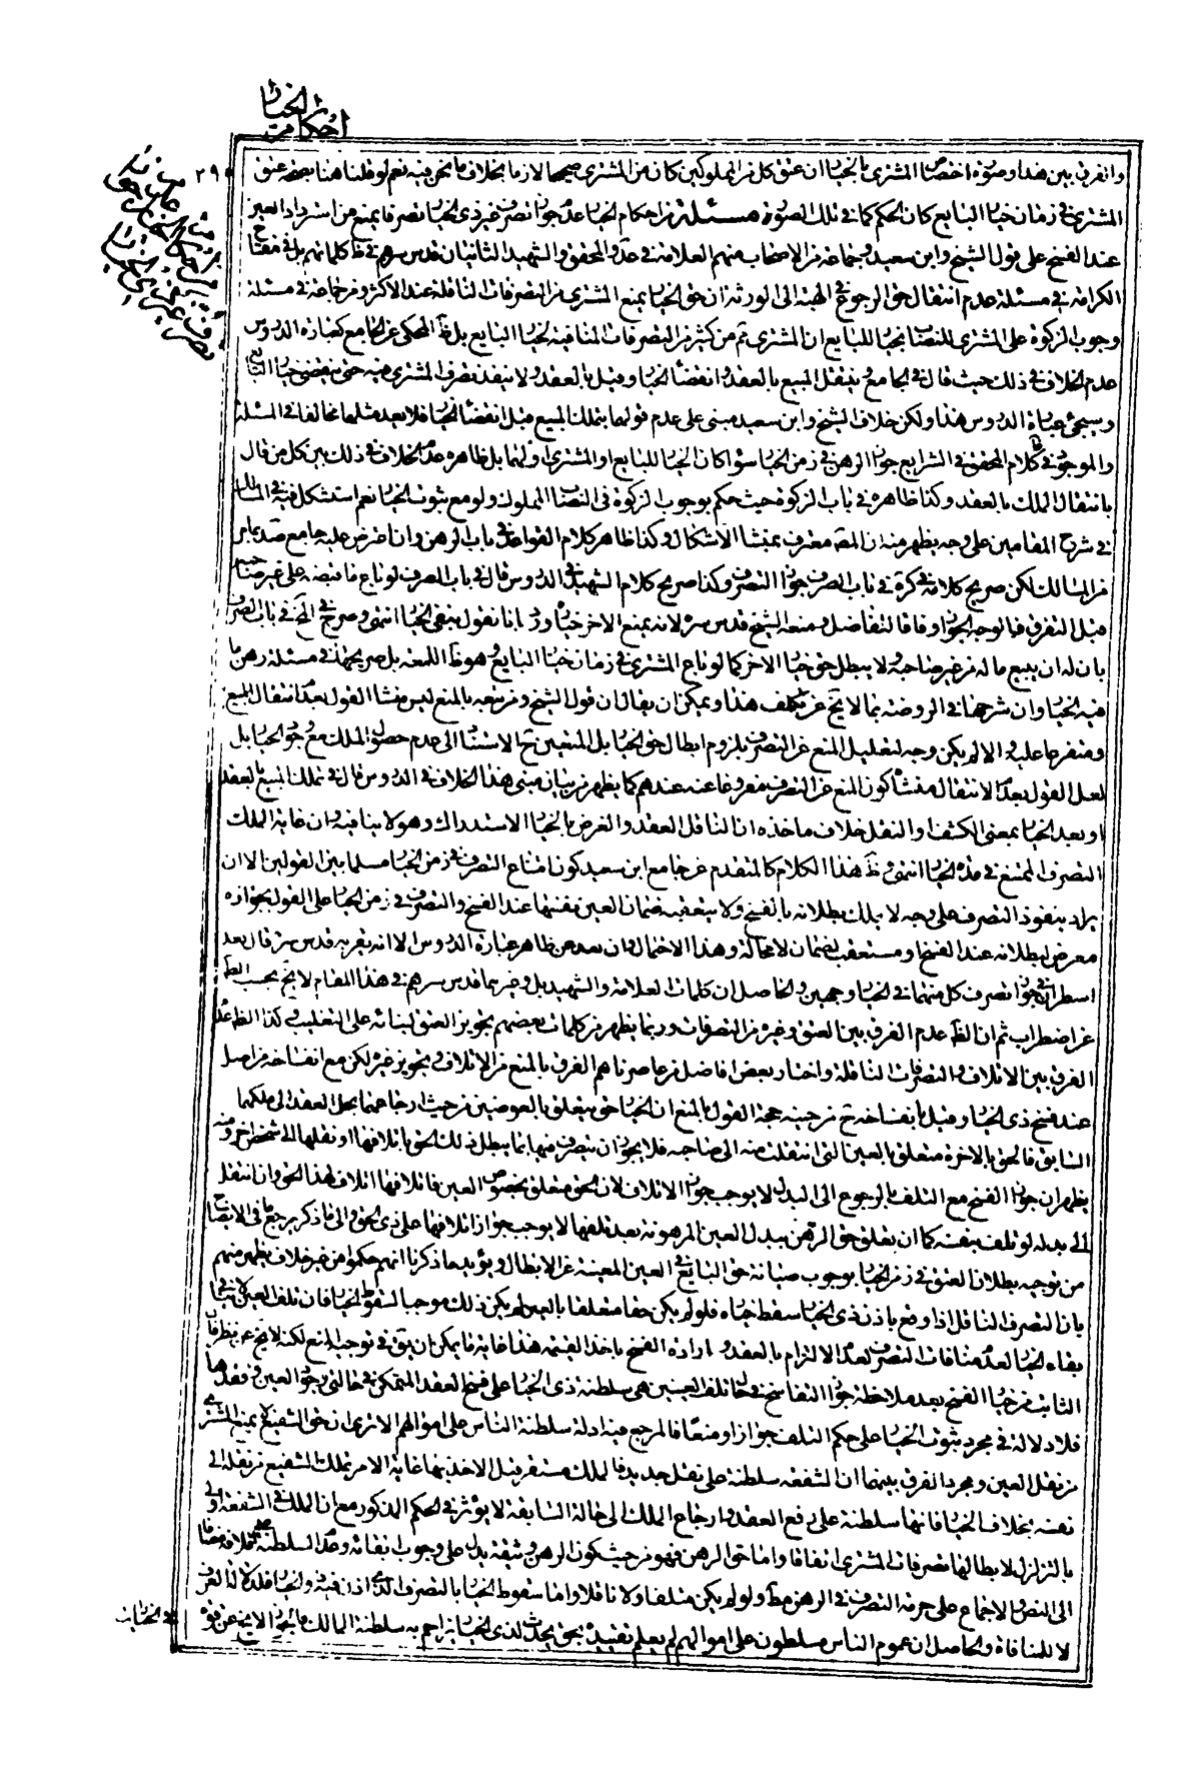 احكام الخيار
٢٩٠
وانفرق بين هذا وصورة اختصاص المشترى بالخيار ان عتق كل من المملوكين كان من المشترى صحيحا لازما بخلاف ما نحن فيه نعم لو قلنا هنا بصحة عتق
المشترى فى زمان خيار البايع كان الحكم كما فى تلك الصورة مسئلة من احكام الخيار عدم جواز تصرف غير ذى الخيار تصرفا يمنع من استرداد العين
عند الفسخ على قول الشيخ وابن سعيد وجماعة من الاصحاب منهم العلامة فى عد والمحقق والشهيد الثانيان قدس سرهم فى ظ كلماتهم بل فى مفتاح
الكرامة فى مسئلة عدم انتقال حق الرجوع فى الهبة الى الورثة ان حق الخيار يمنع المشترى من التصرفات الناقلة عند الاكثر وعن جماعة فى مسئلة
وجوب الزكوة على المشترى للنصاب بخيار للبايع ان المشترى تم من كثير من التصرفات المنافية لخيار البايع بل ظ المحكى عن الجامع كعبارة الدروس
عدم الخلاف فى ذلك حيث قال فى الجامع و ينتقل المبيع بالعقد وانقضاء الخيار وقيل بالعقد ولا ينفذ تصرف المشترى فيه حتى ينقضى خيار البايع
وسيجئ عبارة الدروس هذا ولكن خلاف الشيخ وابن سعيد مبنى على عدم قولهما بتملك المبيع قبل انقضاء الخيار فلا يعد مثلهما مخالفا فى المسئلة
والموجود فى ظ كلام المحقق فى الشرايع جواز الرهن فى زمن الخيار سواء كان الخيار للبايع او المشترى او لهما بل ظاهره عدم الخلاف فى ذلك بين كل من قال
بانتقال الملك بالعقد وكذا ظاهره فى باب الزكوة حيث حكم بوجوب الزكوة فى النصاب المملوك ولو مع ثبوت الخيار نعم استشكل فيه فى المسالك
فى شرح المقامين على وجه يظهر منه ان المصنف معترف بمنشأ الاشكال وكذا ظاهر كلام القواعد فى باب الرهن وان اعترض عليه جامع صد بما مر
من المسالك لكن صريح كلامه فى كرة فى باب الصرف جواز التصرف وكذا صريح كلام الشهيد فى الدروس قال فى باب الصرف لو باع ما قبضه على غير صاحبه
قبل التفرق فالوجه الجواز وفاقا للفاضل ومنعه الشيخ قدس سره لانه يمنع الاخر خياره ورد بانا نقول يبقى الخيار انتهى وصرح فى الخ فى باب الصرف
بان له ان يبيع ماله من غير صاحبه ولا يبطل حق خيار الاخر كما لو باع المشترى فى زمان خيار البايع وهو ظ اللمعة بل صريحها فى مسئلة رهن ما
فيه الخيار وان شرحها فى الروضة بما لا يخ عن تكلف هذا ويمكن ان يقال ان قول الشيخ ومن تبعه بالمنع ليس منشأ القول بعدم انتقال المبيع
ومتفرعا عليه والا لم يكن وجه لتعليل المنع عن التصرف بلزوم ابطال حق الخيار بل المتعين ح الاستناد الى عدم حصول الملك مع وجود الخيار بل
لعل القول بعدم الانتقال منشأه كون المنع عن التصرف مفروغا عنه عندهم كما يظهر من بيان مبنى هذا الخلاف فى الدروس قال فى تملك المبيع بالعقد
او بعد الخيار بمعنى الكشف او النقل خلاف ماخذه ان الناقل العقد والغرض بالخيار الاستدراك وهو لا ينافيه وان غاية الملك
التصرف الممتنع فى مدة الخيار انتهى وظ هذا الكلام كالمتقدم عن جامع ابن سعيد كون امتناع التصرف فى زمن الخيار مسلما بين القولين الا ان
يراد بنفوذ التصرف على وجه لا يملك بطلانه بالفسخ ولا يتعقبه ضمان العين بقيمتها عند الفسخ والتصرف فى زمن الخيار على القول بجوازه
معرض لبطلانه عند الفسخ او مستعقب لضمان لا محالة وهذا الاحتمال وان بعد عن ظاهر عبارة الدروس الا انه يقربه قدس سره قال بعد
اسطر ان فى جواز تصرف كل منهما فى الخيار وجهين والحاصل ان كلمات العلامة والشهيد بل وغيرهما قدس سرهم فى هذا المقام لا يخ بحسب الظ
عن اضطراب ثم ان الظ عدم الفرق بين العتق وغيره من التصرفات وربما يظهر من كلمات بعضهم تجويز العتق لبنائه على التغليب وكذا الظ عدم
الفرق بين الاتلاف والتصرفات الناقلة واختار بعض افاضل من عاصرناهم الفرق بالمنع من الاتلاف وتجويز غيره لكن مع انفساخه من اصله
عند فسخ ذى الخيار وقيل بانفساخه ح من حينه حجة القول بالمنع ان الخيار حق يتعلق بالعوضين من حيث ارجاعهما بحل العقد الى ملكهما
السابق فالحق بالاخرة متعلق بالعين التى انتقلت منه الى صاحبه فلا يجوز ان يتصرف فيها بما يبطل ذلك الحق باتلافها او نقلها الى شخص اخر ومنه
يظهر ان جواز الفسخ مع التلف بالرجوع الى البدل لا يوجب جواز الاتلاف لان الحق متعلق بخصوص العين فاتلافها اتلاف لهذا الحق وان انتقل
الى بدله لو تلف بنفسه كما ان تعلق حق الرهن ببدل العين المرهونة بعد تلفها لا يوجب جواز اتلافها على ذى الحق والى ما ذكر يرجع ما فى الايضاح
من توجيه بطلان العتق فى زمن الخيار بوجوب صيانة حق البايع فى العين المعينة عن الابطال ويؤيد ما ذكرنا انهم حكموا من غير خلاف يظهر منهم
بان التصرف الناقل اذا وقع باذن ذى الخيار سقط خياره فلو لم يكن حقا متعلقا بالعين لم يكن ذلك موجبا لسقوط الخيار فان تلف العين لا ينافى
بقاء الخيار لعدم منافات التصرف لعدم الالتزام بالعقد وارادة الفسخ باخذ القيمة هذا غاية ما يمكن ان يق فى توجيه المنع لكنه لا يخ عن نظر فان
الثابت من خيار الفسخ بعد ملاحظة جواز التفاسخ فى حال تلف العينين هى سلطنة ذى الخيار على فسخ العقد المتمكن فى حالتى وجود العين وفقدها
فلا دلالة فى مجرد ثبوت الخيار على حكم التلف جوازا ومنعا فالمرجع فيه ادلة سلطنة الناس على اموالهم الا ترى ان حق الشفيع لا يمنع المشترى
من نقل العين ومجرد الفرق بينهما ان الشفعة سلطنة على نقل جديد فالملك مستقر قبل الاخذ بها غاية الامر تملك الشفيع نقله الى
نفسه بخلاف الخيار فانها سلطنة على رفع العقد وارجاع الملك الى حالة السابقة لا يؤثر فى الحكم المذكور مع ان الملك فى الشفعة اولى
بالتزلزل لابطالها تصرفات المشترى اتفاقا واما حق الرهن فهو من حيث كون الرهن وثيقة يدل على وجوب ابقائه وعدم السلطنة على اتلافه مضافا
الى النص والاجماع على حرمة التصرف فى الرهن مط ولو لم يكن متلفا ولا ناقلا واما سقوط الخيار بالتصرف الذى اذن فيه ذو الخيار فلدلالة العرف
لا للمنافاة والحاصل ان عموم الناس مسلطون على اموالهم لم يعلم تقييده بحق يحدث لذى الخيار يزاحم به سلطنة المالك فالجواز لا يخ عن قوة
فى الخيارات